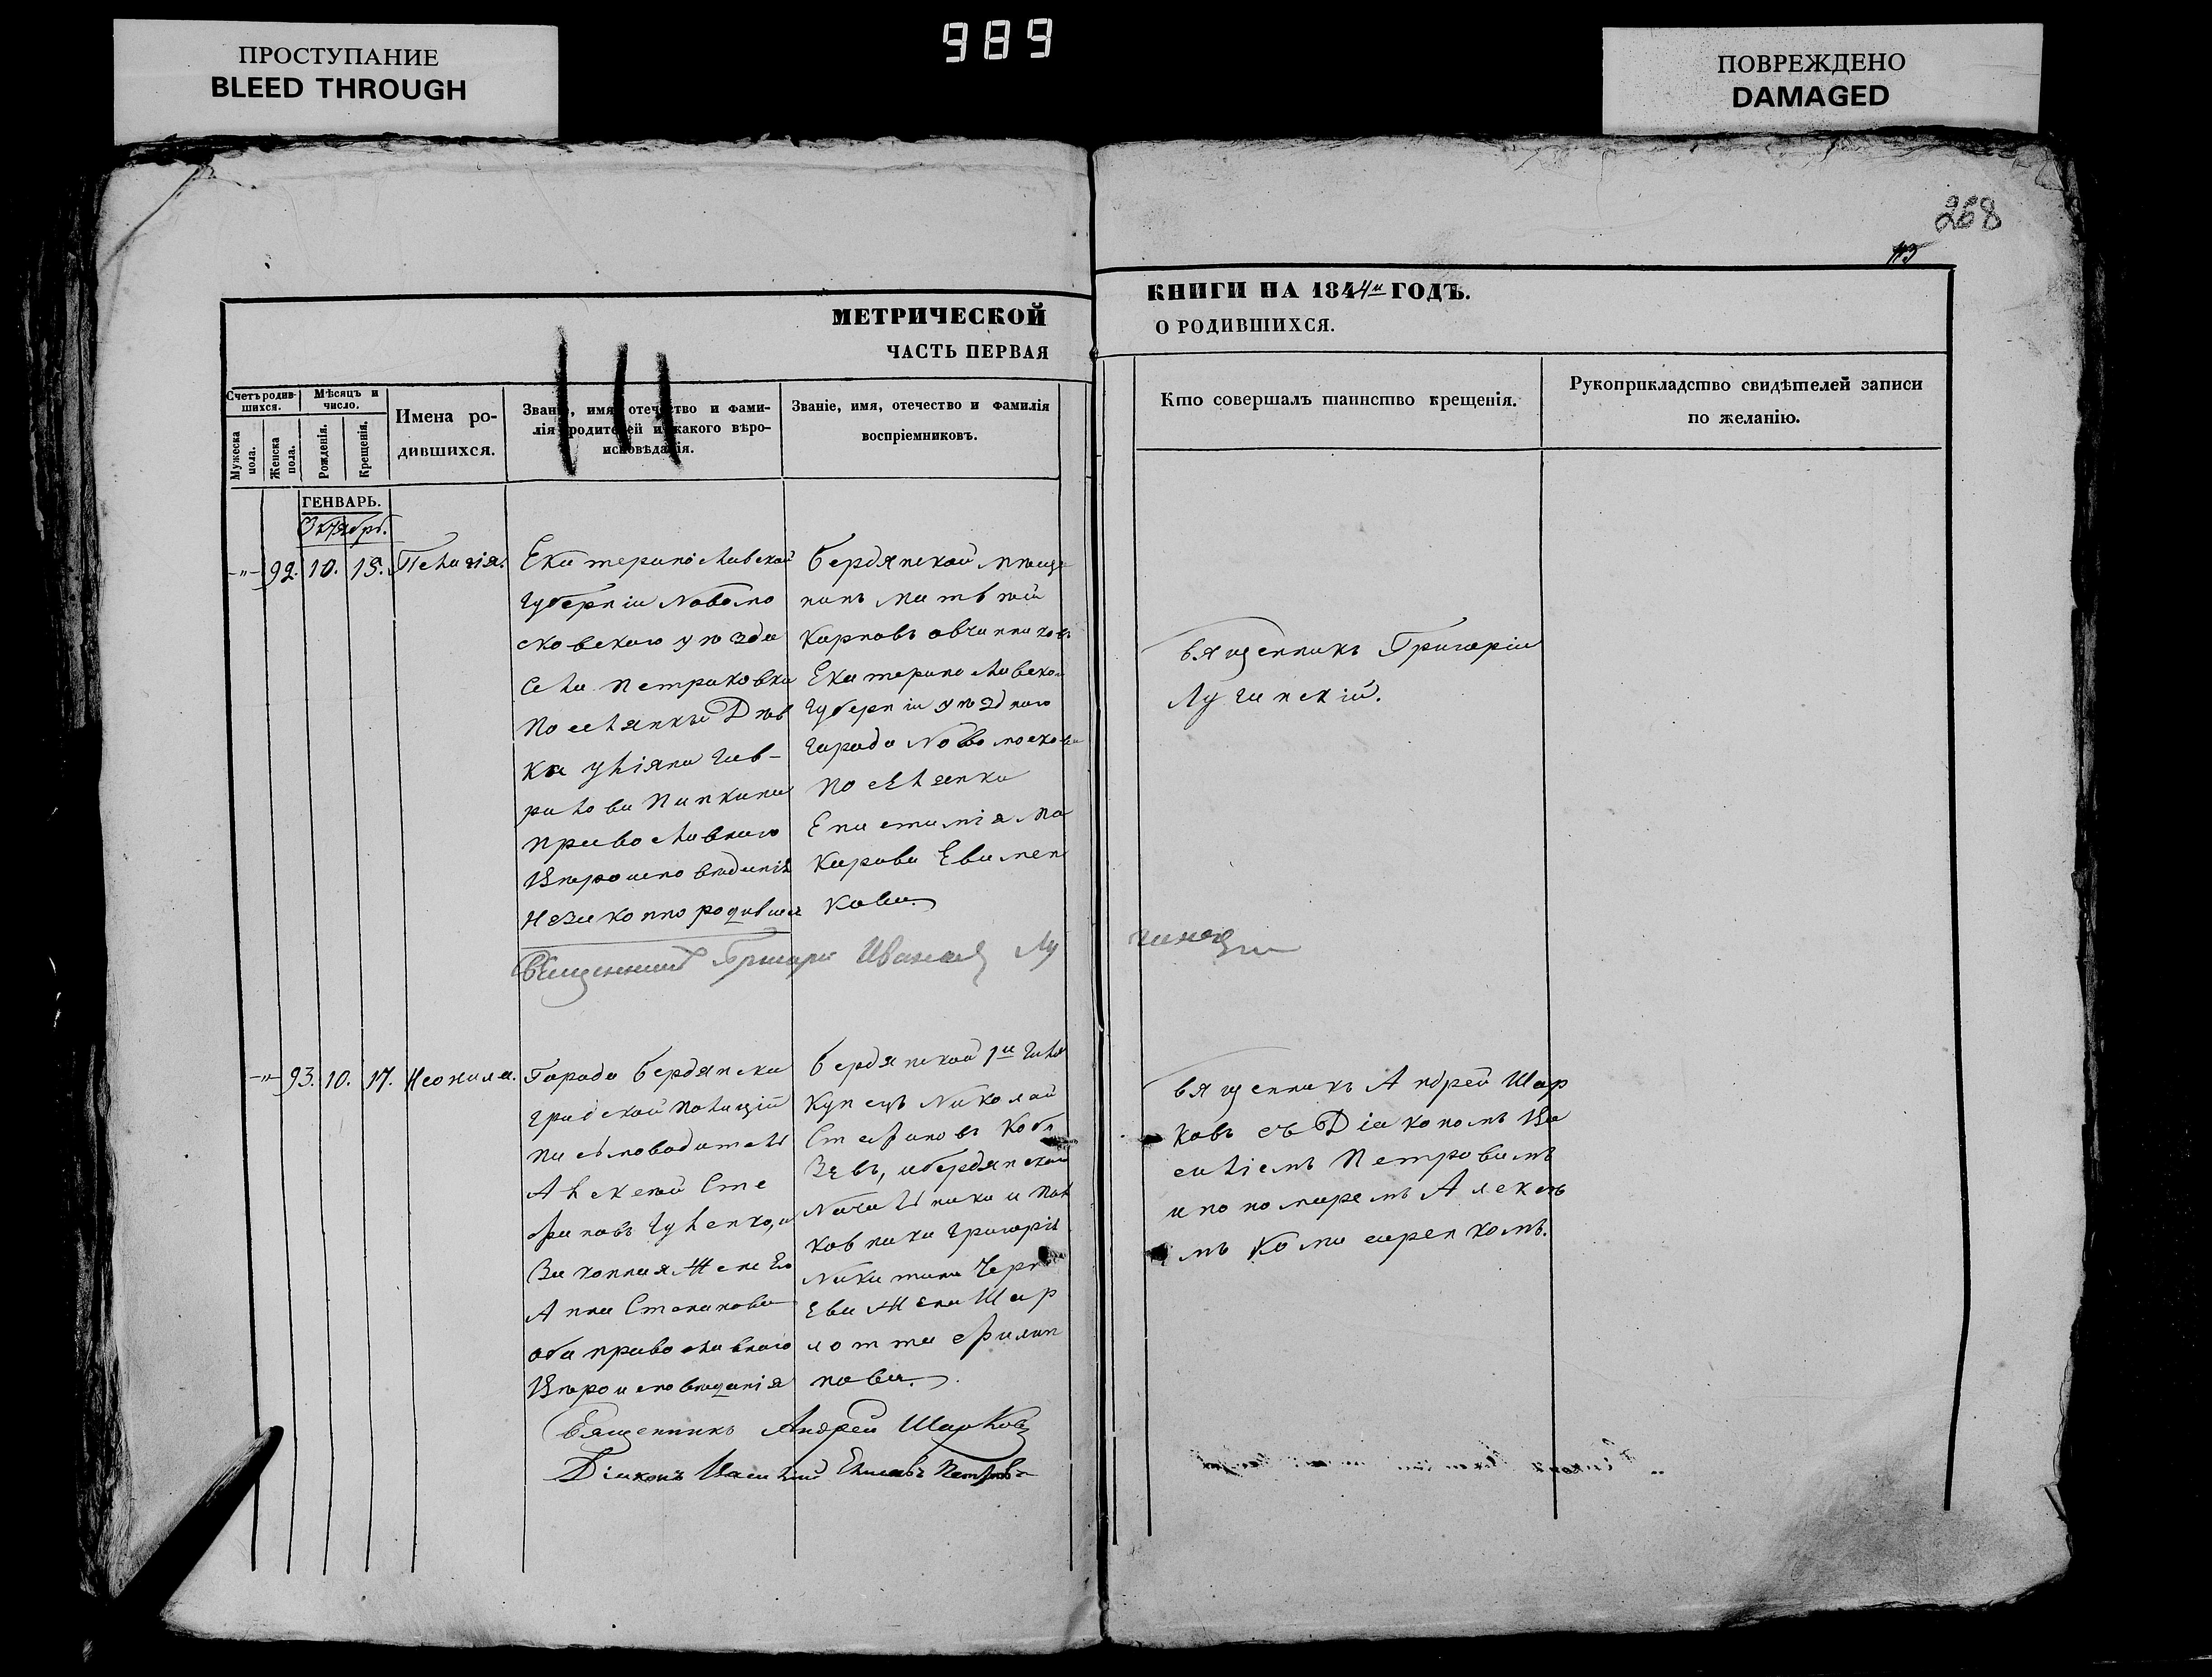 ПРОСТУПАНИЕ
BLEED THROUGH
989
ПОВРЕЖДЕНО
DAMAGED
268
МЕТРИЧЕСКОЙ
ЧАСТЬ ПЕРВАЯ
КНИГИ НА 1844й ГОДЪ.
О РОДИВШИХСЯ.
Счетъ родив-
шихся.
Мужеска
пола.
Женска
пола.
Мѣсяцъ и
число.
Рожденія.
Крещенія.
Имена ро-
дившихся.
Званіе, имя, отечество и фами-
лія родителей и какого вѣро-
исповѣданія.
Званіе, имя, отечество и фамилія
воспріемниковъ.
Кто совершалъ таинство крещенія.
Рукоприкладство свидѣтелей записи
по желанію.
ГЕНВАРЬ.
Октябрь.
-"- 92. 10. 15. Пелагія.
Екатеринославской
Губерніи Новомо
сковскаго уѣзда
Села Петриковки
Поселянки Дѣв
ки Уліяны Гав-
рилова
православнаго
Вѣроисповѣданія
Незаконнорожденная
Бердянской мѣща
нинъ Матвѣй
Карповъ Овчинниковъ
Екатеринославской
Губерніи уѣзднаго
города Новомосковска
поселянка
Епистимія Ма
карова Евимен
кова.
Священникъ Григорій
Лучинскій.
Священникъ Григорій Ивановъ Лу
чинскій
-"- 93. 10. 17. Неонила.
Города Бердянска
градской Полиціи
письмоводитель
Алексѣй Сте
фановъ Гуленко, и
Законная Жена Его
Анна Степанова
оба православнаго
Вѣроисповѣданія
Бердянской 1й Гил
Купецъ Николай
Стефановъ Кобо
зевъ, и бердянскаго
Начальника и Пол
ковника Григорія
Никитина Черня
ева Жена Шар
лотта Филип
пова.
Священникъ Андрей Шар
ковъ съ Діакономъ Ва
силіемъ Петровымъ
и пономаремъ Алексѣе
мъ Комисаренкомъ.
Священникъ Андрей Шарковъ
Діаконъ Василий Петровъ